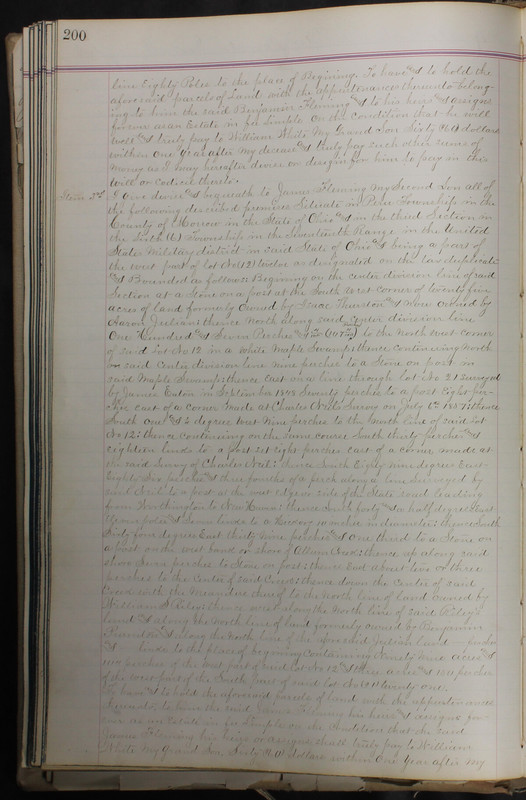 200
line Eighty Poles to the place of Begining. To have & to hold the
aforesaid parcels of Land with the appurtenances thereunto belong-
ing to him the said Benjamin Fleming & to his heirs & assigns
forever as an Estate in fee Simple on the Condition that he will
well & truly pay to William White My Grand Son Sixty dollars
within One Year after my decease & truly pay such other sums of
money as I may hereafter devise or design for him to pay in this
Will or codicil thereto.
Item 2nd I Give devise & bequeath to James Fleming My Second Son all of
the following described premises Situate in Peru Township in the
County of Morrow in the State of Ohio & in the third Section in
the Sixth (6) Township in the Seventeenth Range in the United
States Military district in said State of Ohio & being a part of
the west part of lot No (12) twelve as designated on the tax duplicate
& Bounded as follows: Begining on the center division line of said
Section at a Stone on a post at the South West corner of twenty five
acres of land formerly Owned by Isaac Thurston & now owned by
Aaron Julian thence North along said center division line
One Hundred & Seven Perches & (107) to the North West corner
of said Lot No 12 in a White Maple Swamp; thence continuing North
on said Center division line nine perches to a Stone on post in
said Maple Swamp; thence East on a line through lot No 21 surveyed
by James Eaton in September 18 Seventy perches to a post Eight per-
ches east of a corner made at Charles Neils Survey on July 6th 1857; thence
South one & ½ degree West Nine perches to the South line of said Lot
No 12; thence continuing on the same course South thirty perches &
eighteen links to a post set eight perches east of a corner made at
the said Survey of Charles Neil; thence South Eighty nine degrees East
Eighty Six perches & three fourths of a perch along a line Surveyed by
said Neil to a post at the west edge or side of the State road leading
from Worthington to New Haven; thence South forty & a half degrees East
poles & Seven links to a Hickory inches in diameter; thence South
Sixty four degrees East thirty nine perches & One third to a Stone on
a post on the west bank or shore of Allum Creek; thence up along said
shore Seven perches to Stone on post; thence East about two or three
perches to the Center of said Creek; thence down the Center of said
Creek with the Meanders thereof to the north line of land Owned by
William S Riley; thence west along the North line of said Riley's
land & along the North line of land formerly owned by Benjamin
& along the North line of the aforesaid Julian land
& links to the place of begining Containing Ninety acres &
six perches of the West part of said Lot No 12 & three acres & perches
of the west part of the South part of said lot No (21) twenty one.
To have & to hold the aforesaid parcels of land with the appurtenances
thereunto, to him the said James Fleming his heirs & assigns for-
ever as an Estate in fee Simple on the Condition that the said
James Fleming his heirs or assigns shall truly pay to William
White My Grand Son, Sixty dollars within One Year after My